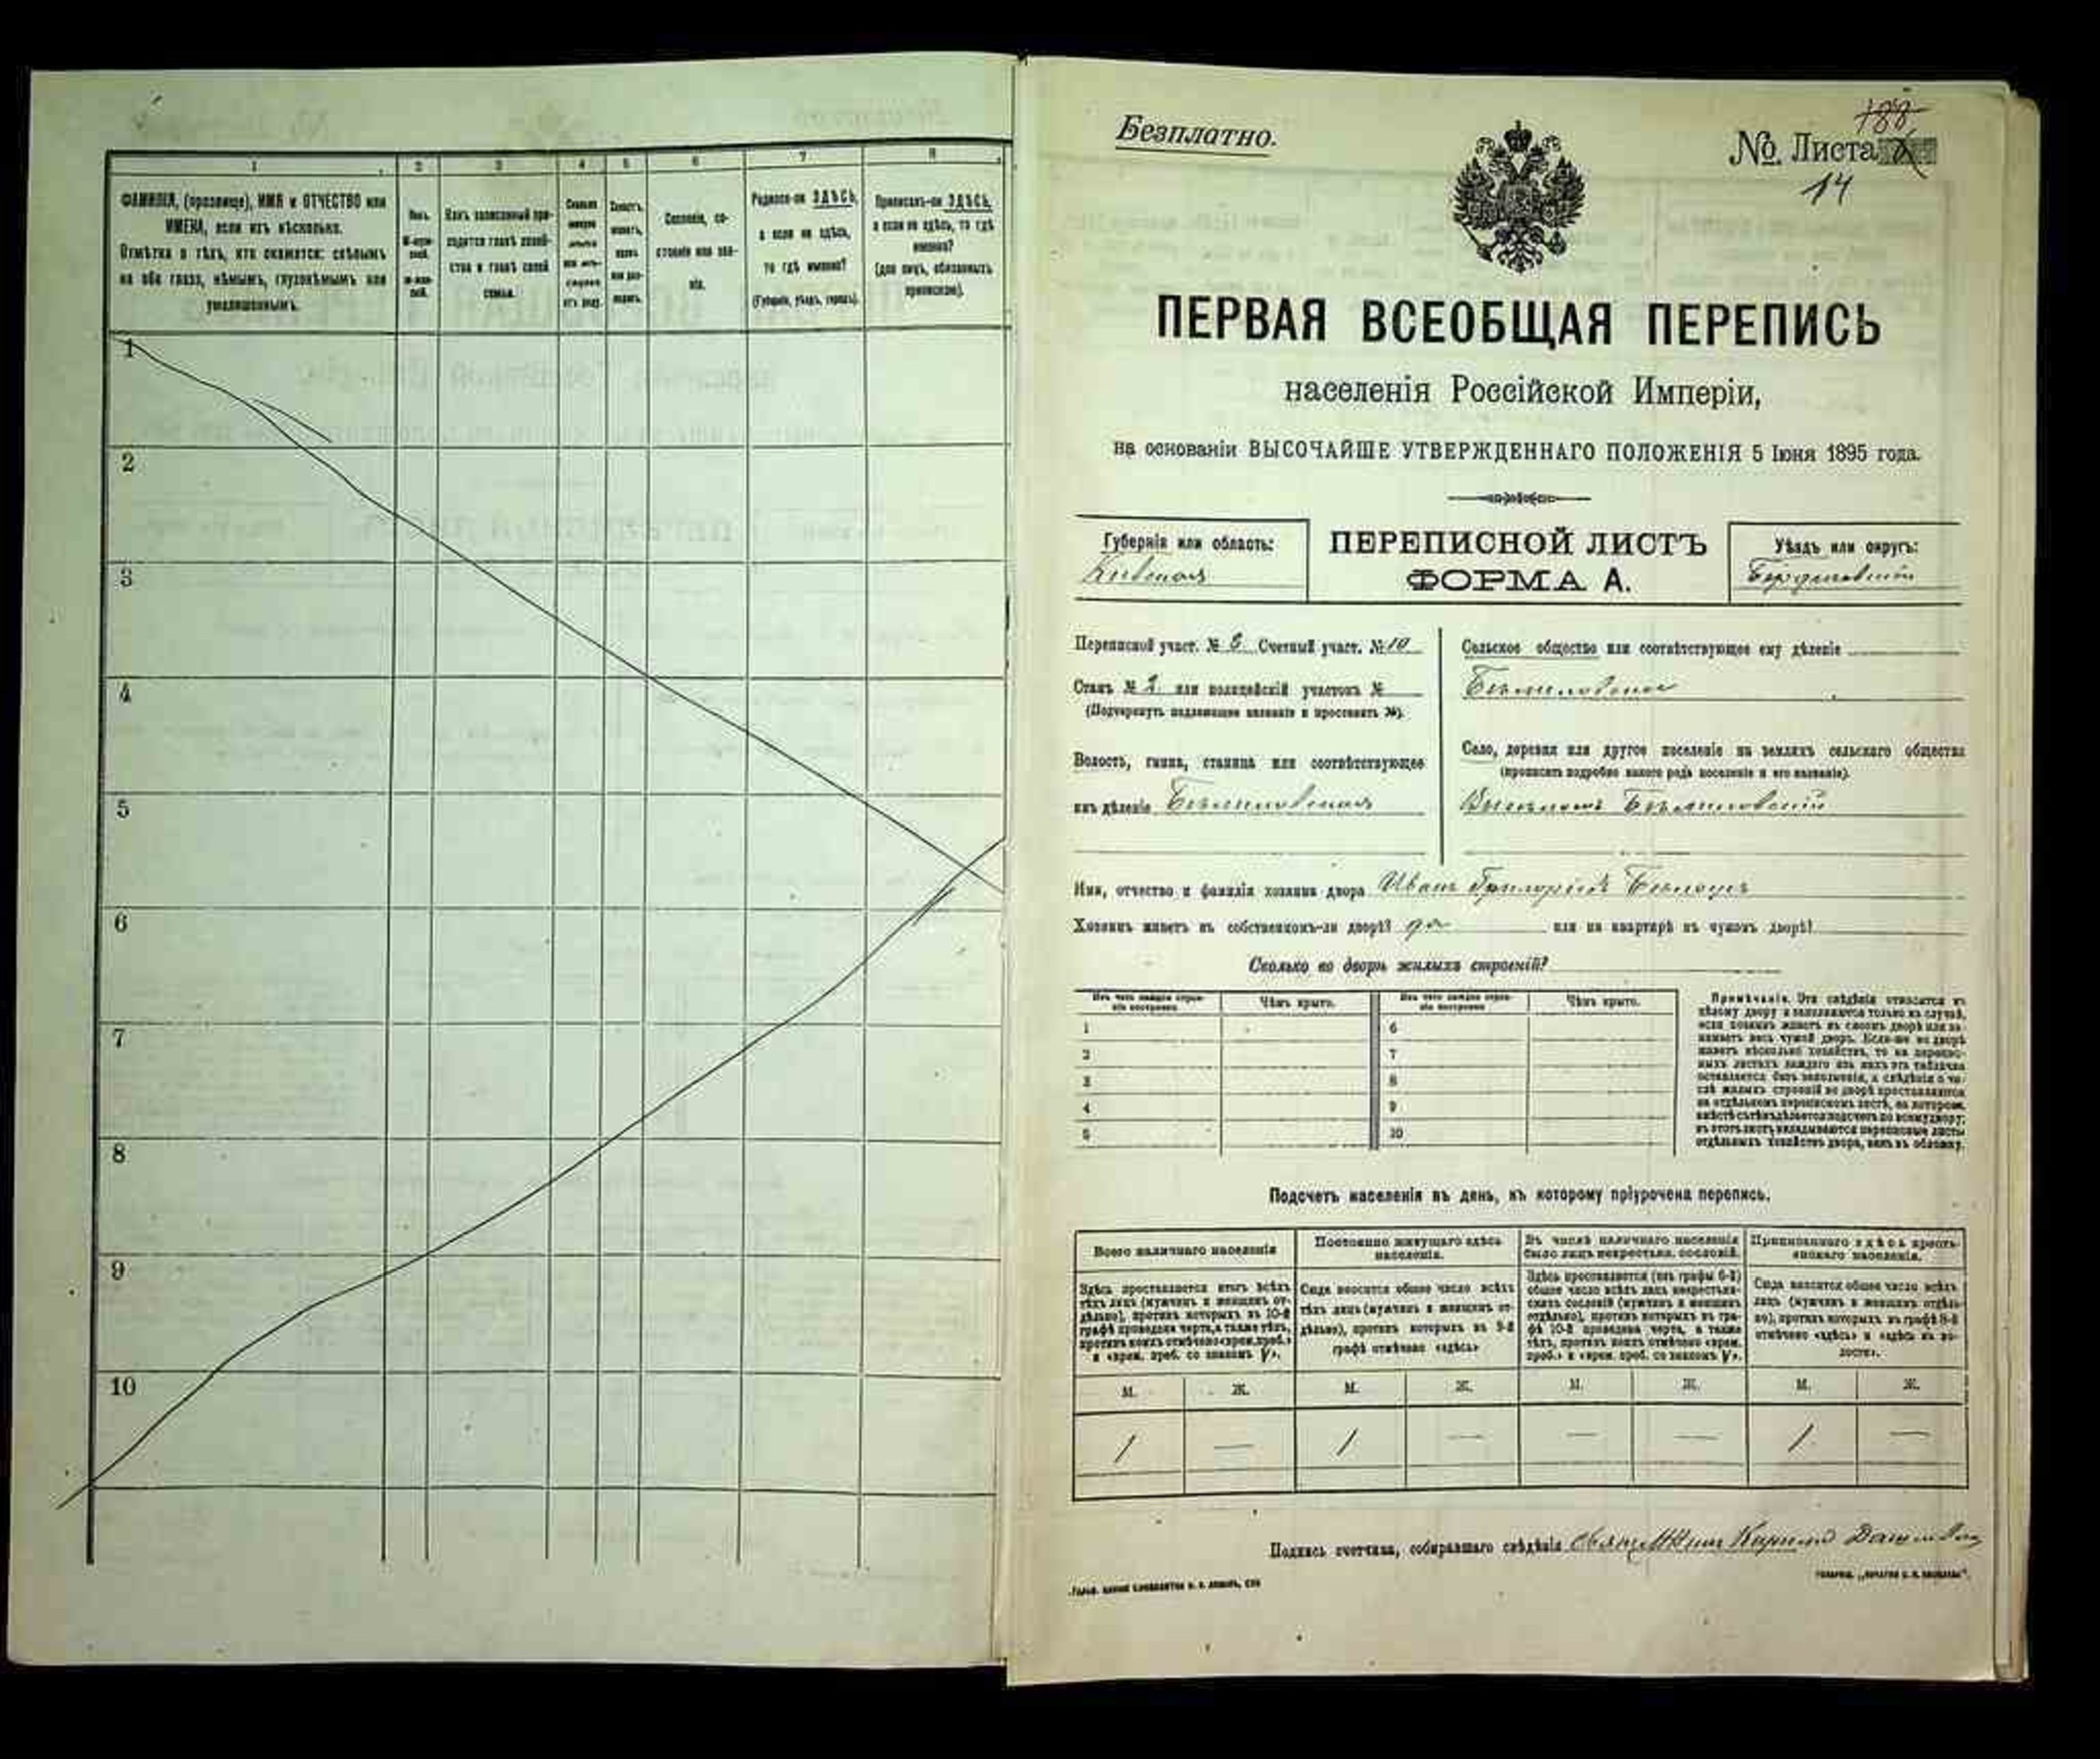 1 2 3 4 5 6 7 8
ФАМИЛІЯ, (прозвище), ИМЯ и ОТЧЕСТВО или
ИМЕНА, если ихъ нѣсколько.
Отмѣтка о тѣхъ, кто окажется: слѣпымъ
на оба глаза, нѣмымъ, глухонѣмымъ или
умалишоннымъ.
Полъ.
Какъ записанный при-
ходится главѣ хозяй-
ства и главѣ своей
семьи.
Сословіе, со-
стояніе или зва-
ніе.
Родился-ли ЗДѢСЬ,
а если не здѣсь,
то гдѣ именно?
(Губернія, уѣздъ, городъ).
Приписанъ-ли ЗДѢСЬ,
а если не здѣсь, то гдѣ
именно?
(для лицъ, обязанныхъ
припискою).
1
2
3
4
5
6
7
8
9
10
Безплатно.
188
№ Листа
14
ПЕРВАЯ ВСЕОБЩАЯ ПЕРЕПИСЬ
населенія Россійской Имперіи,
на основаніи ВЫСОЧАЙШЕ УТВЕРЖДЕННАГО ПОЛОЖЕНІЯ 5 Іюня 1895 года.
Губернія или область:
Кіевская
ПЕРЕПИСНОЙ ЛИСТЪ
ФОРМА А.
Уѣздъ или округъ:
Бердичевскій
Переписной участ. № Счетный участ. № 10
Станъ № 2 или полицейскій участокъ №
(Подчеркнуть надлежащее названіе и проставить №).
Волость, гмина, станица или соотвѣтствующее
имъ дѣленіе Бѣлиловская
Сельское общество или соотвѣтствующее ему дѣленіе
Бѣлиловское
Село, деревня или другое поселеніе на земляхъ сельскаго общества
(прописать подробно какого рода поселеніе и его названіе).
Выселокъ Бѣлиловскій
Имя, отчество и фамилія хозяина двора Иванъ Григорьевъ
Хозяинъ живетъ въ собственномъ-ли дворѣ? да или на квартирѣ въ чужомъ дворѣ?
Сколько во дворѣ жилыхъ строеній?
Изъ чего каждое строе-
ніе построено.
Чѣмъ крыто.
Изъ чего каждое строе-
ніе построено.
Чѣмъ крыто.
1 6
2 7
3 8
4 9
5 10
Примѣчаніе. Эти свѣдѣнія относятся къ
цѣлому двору и заполняются только въ случаѣ,
если хозяинъ живетъ въ своемъ дворѣ или за-
нимаетъ весь чужой дворъ. Если-же во дворѣ
живетъ нѣсколько хозяйствъ, то на перепис-
ныхъ листахъ каждаго изъ нихъ эта табличка
оставляется безъ заполненія, а свѣдѣнія о чи-
слѣ жилыхъ строеній во дворѣ проставляются
на отдѣльномъ переписномъ листѣ, на которомъ
вмѣстѣ съ тѣмъ дѣлается подсчетъ по всему двору;
въ этотъ листъ вкладываются переписные листы
отдѣльныхъ хозяйствъ двора, какъ въ обложку.
Подсчетъ населенія въ день, къ которому пріурочена перепись.
Всего наличнаго населенія
Постоянно живущаго здѣсь
населенія.
Въ числѣ наличнаго населенія
было лицъ некрестьян. сословій.
Приписаннаго здѣсь кресть-
янскаго населенія.
Здѣсь проставляется итогъ всѣхъ
тѣхъ лицъ (мужчинъ и женщинъ от-
дѣльно), противъ которыхъ въ 10-й
графѣ проведена черта, а также тѣхъ,
противъ коихъ отмѣчено «врем. преб.»
и «врем. преб. со знакомъ V».
Сюда вносится общее число всѣхъ
тѣхъ лицъ (мужчинъ и женщинъ от-
дѣльно), противъ которыхъ въ 9-й
графѣ отмѣчено «здѣсь»
Здѣсь проставляется (изъ графы 6-й)
общее число всѣхъ лицъ некрестьян-
скихъ сословій (мужчинъ и женщинъ
отдѣльно), противъ которыхъ въ гра-
фѣ 10-й проведена черта, а также
тѣхъ, противъ коихъ отмѣчено «врем.
преб.» и «врем. преб. со знакомъ V».
Сюда вносится общее число всѣхъ
лицъ (мужчинъ и женщинъ отдѣль-
но), противъ которыхъ въ графѣ 8-й
отмѣчено «здѣсь» и «здѣсь въ во-
лости».
М. Ж. М. Ж. М. Ж. М. Ж.
1 — 1 — — — 1 —
Подпись счетчика, собиравшаго свѣдѣнія Священникъ Кириллъ